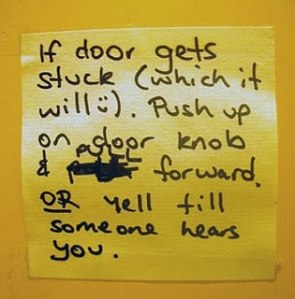 If door gets
stuck (which it
will ☺). Push up
on door knob
& forward.
OR yell till
someone hears
you.